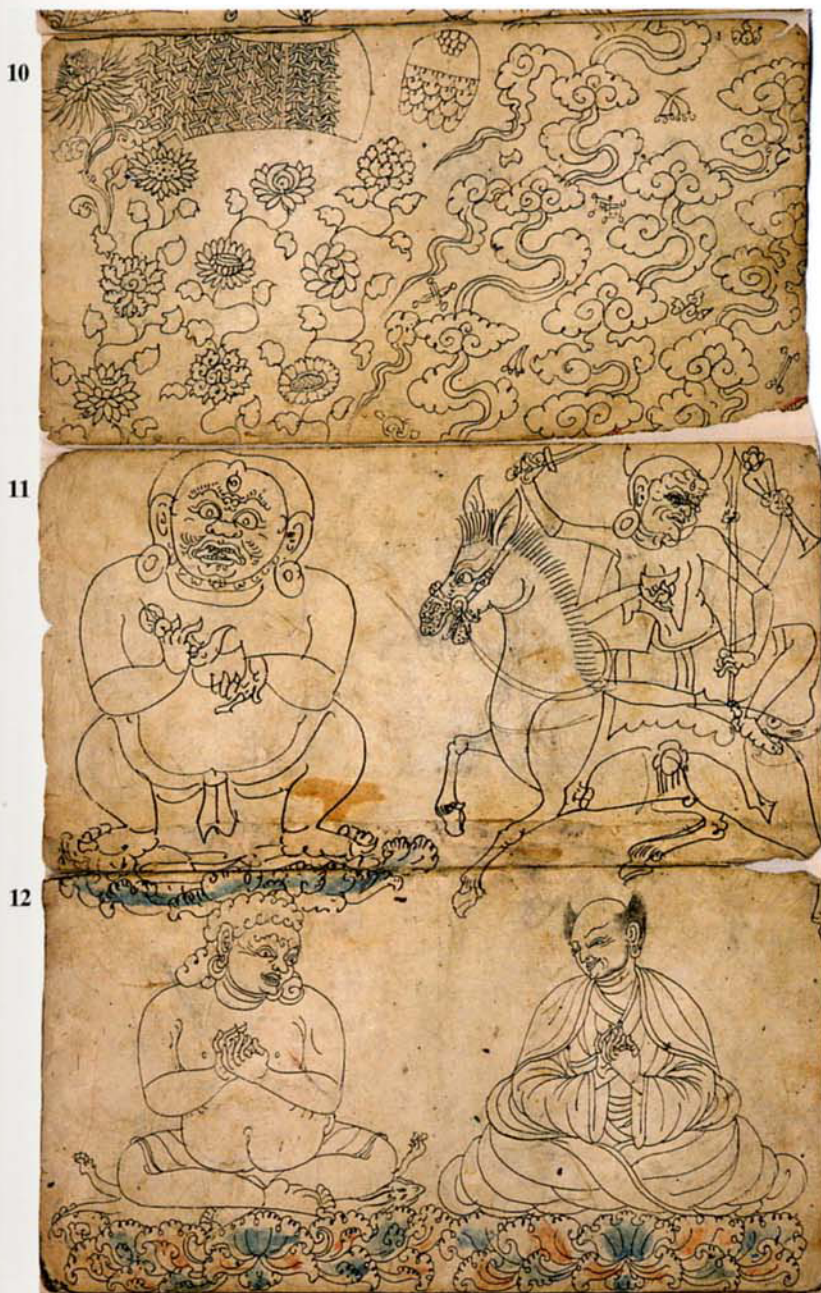 10
11
12